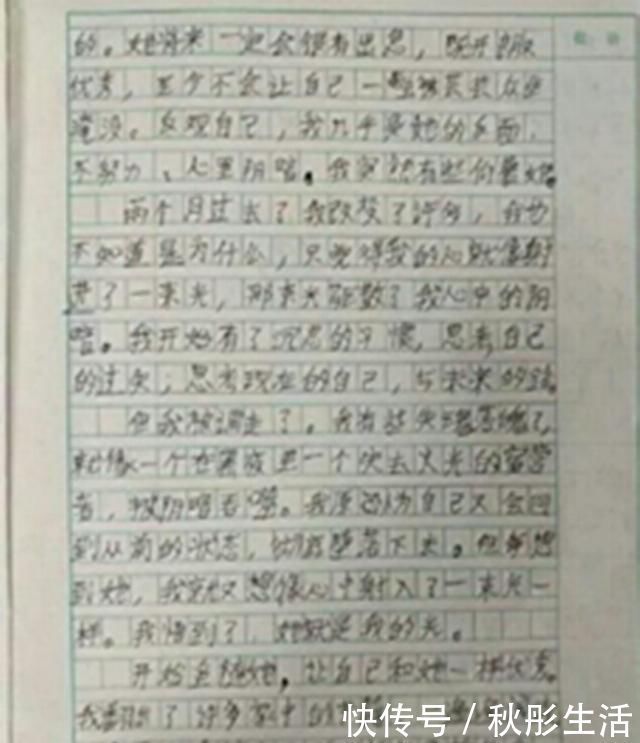 的。她将来一定会很有出息，既开朗
优秀，至少不会让自己一生被芸芸众生
淹没。反观自己，我几乎是她的反面，
不努力、心里阴暗。我突然有些仰慕她。
两个月过去了我改变了许多，我也
不知道是为什么，只觉得我的心就像射
进了一束光，那束光驱散了我心中的阴
暗。我开始有了沉思的习惯，思考自己
的过失；思考现在的自己，与未来的路。
但我被调走了。我有些失魂落魄了，
就像一个在黑夜里一个失去火光的宿营
者，被阴暗吞噬。我原以为自己又会回
到从前的状态，彻底堕落下去。但每想
到她，我就又想像心中射入了一束光一
样。我悟到了，她就是我的光。
开始追随她，让自己和她一样优秀。
我翻阅了许多家中的
快传号／秋彤生活